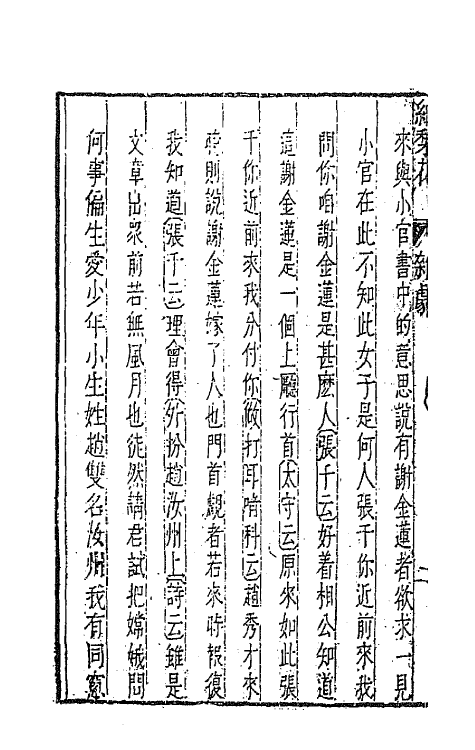 紅梨花　雜劇　二
來與小官書中的意思說有謝金蓮者欲求一見
小官在此不知此女子是何人張千你近前來我
問你咱謝金蓮是甚麽人（張千云）好着相公知道
這謝金蓮是一個上㕔行首（太守云）原來如此張
千你近前來我分付你（做打耳喑科云）趙秀才來
時則說謝金蓮嫁了人也門首觀者若來時報復
我知道（張千云）理會得（外扮趙汝州上）（詩云）雖是
文章出衆前若無風月也徒然請君試把嫦娥問
何事偏生愛少年小生姓趙雙名汝州我有同窓